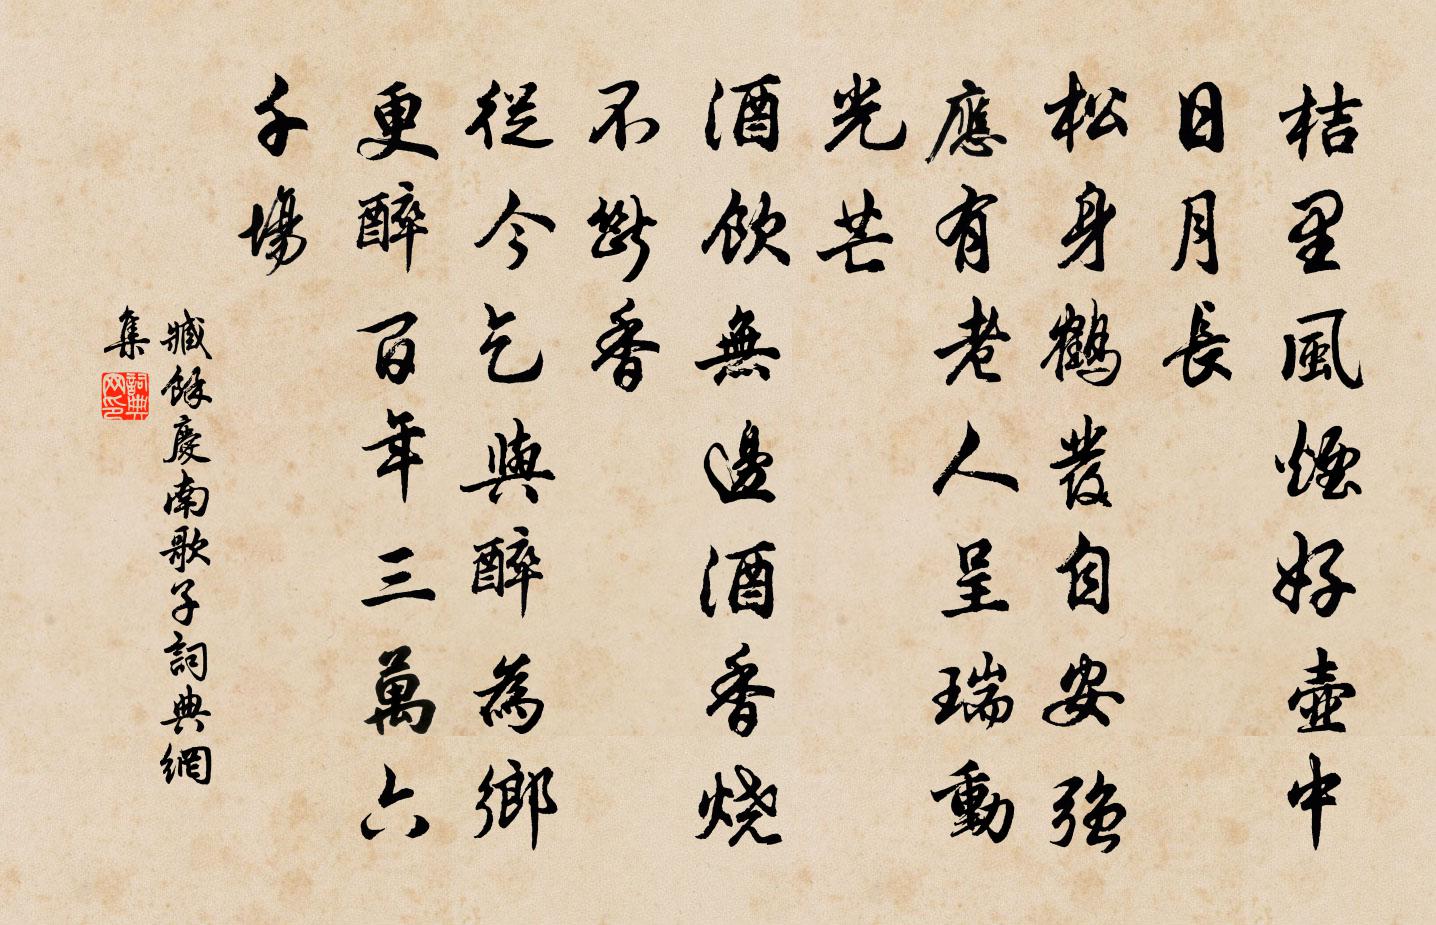 桔里風煙好壺中
日月長
松身鶴發自安強
應有老人呈瑞動
光芒
酒飲無邊酒香燒
不斷香
從今乞與醉為鄉
更醉百年三萬六
千場
臧餘慶南歌子詞典網
集
詞典網印